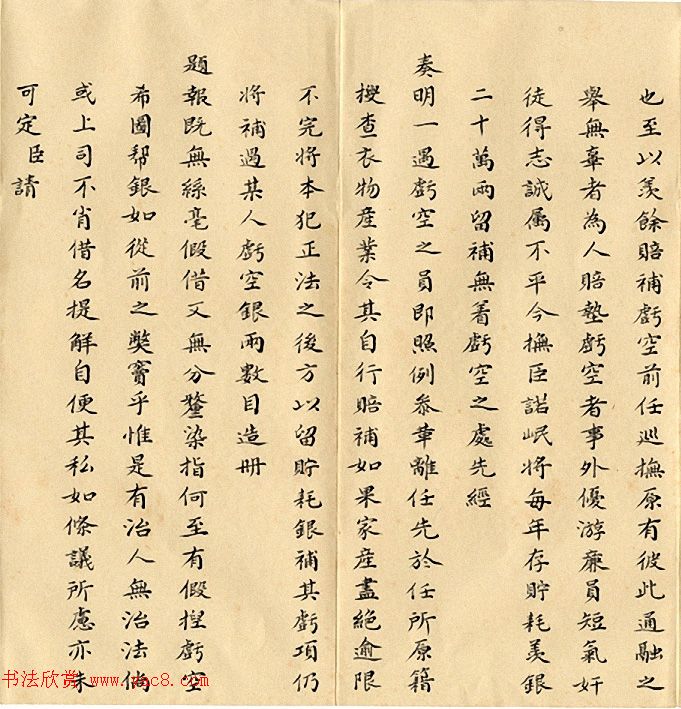 也至以羨餘賠補虧空前任巡撫原有彼此通融之
舉無辜者為人賠墊虧空者事外優游廉員短氣奸
徒得志誠属不平今撫臣諾岷將每年存貯耗羨銀
二十萬兩留補無着虧空之處先經
奏明一遇虧空之員即照例叅革離任先於任所原籍
搜查衣物產業令其自行賠補如果家產盡絕逾限
不完將本犯正法之後方以留貯耗銀補其虧項仍
將補過某人虧空銀兩數目造册
題報既無絲毫假借又無分釐染指何至有假揑虧空
希圖幇銀如從前之獘竇乎惟是有治人無治法倘
或上司不肖借名提解自便其私如條議所慮亦未
可定臣請
书法欣赏 www.yac8.com